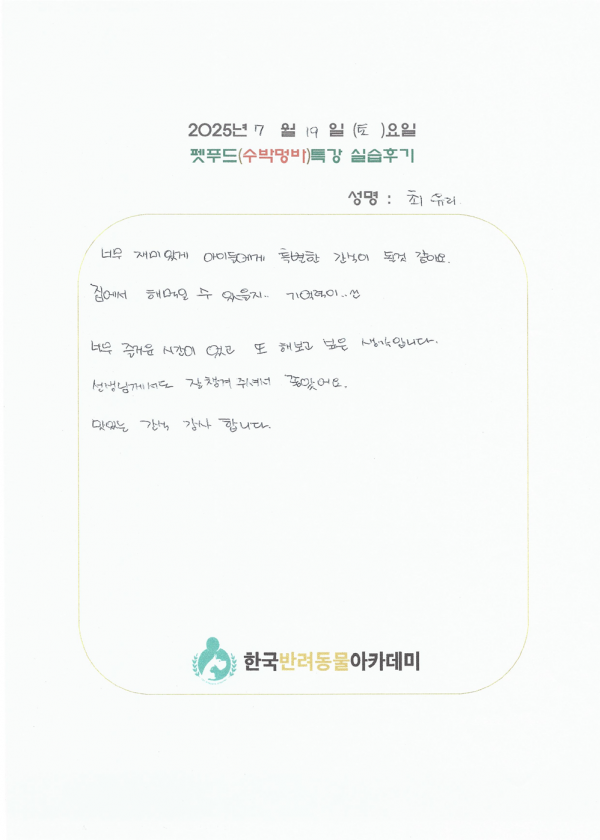 2025년 7 월 19 일 (토 )요일
펫푸드(수박멍바)특강 실습후기
성명 : 최유리
너무 재미있게 아이들에게 특별한 간식이 될것 같아요.
집에서 해먹일 수 있을지.. 기억력이..
너무 즐거운 시간이 었고 또 해보고 싶은 생각입니다.
선생님께서도 잘챙겨 주셔서 좋았어요.
맛있는 간식 감사 합니다.
한국반려동물아카데미